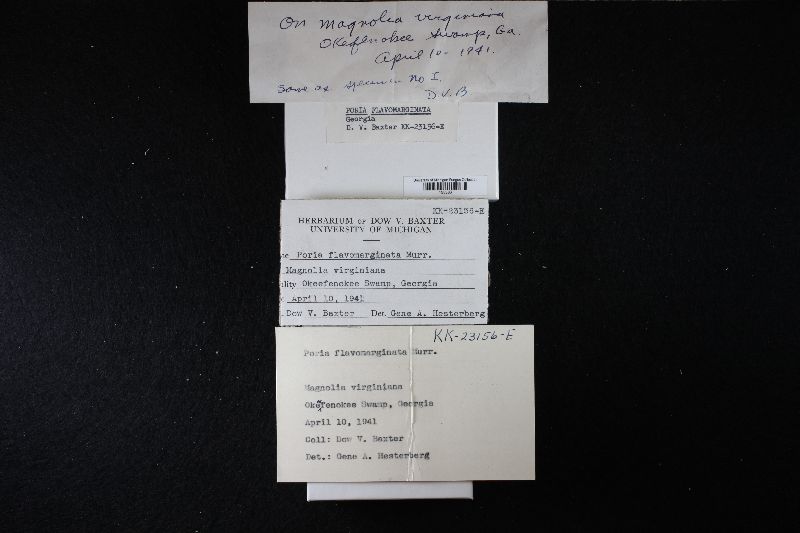 On Magnolia virginiana
Okefenokee Swamp, Ga.
April 10 - 1941.
Same as specimen No I.
D.V.B
PORIA FLAVOMARGINATA
Georgia
D. V. Baxter KK-23156-E
University of Michigan Fungus Collection
KK-23156-E
HERBARIUM OF DOW V. BAXTER
UNIVERSITY OF MICHIGAN
Poria flavomarginata Murr.
Magnolia virginiana
lity Okeefenokee Swamp, Georgia
April 10, 1941
Dow V. Baxter Det. Gene A. Hesterberg
KK-23156-E
Poria flavomarginata Murr.
Magnolia virginiana
Okefenokee Swamp, Georgia
April 10, 1941
Coll: Dow V. Baxter
Det.: Gene A. Hesterberg